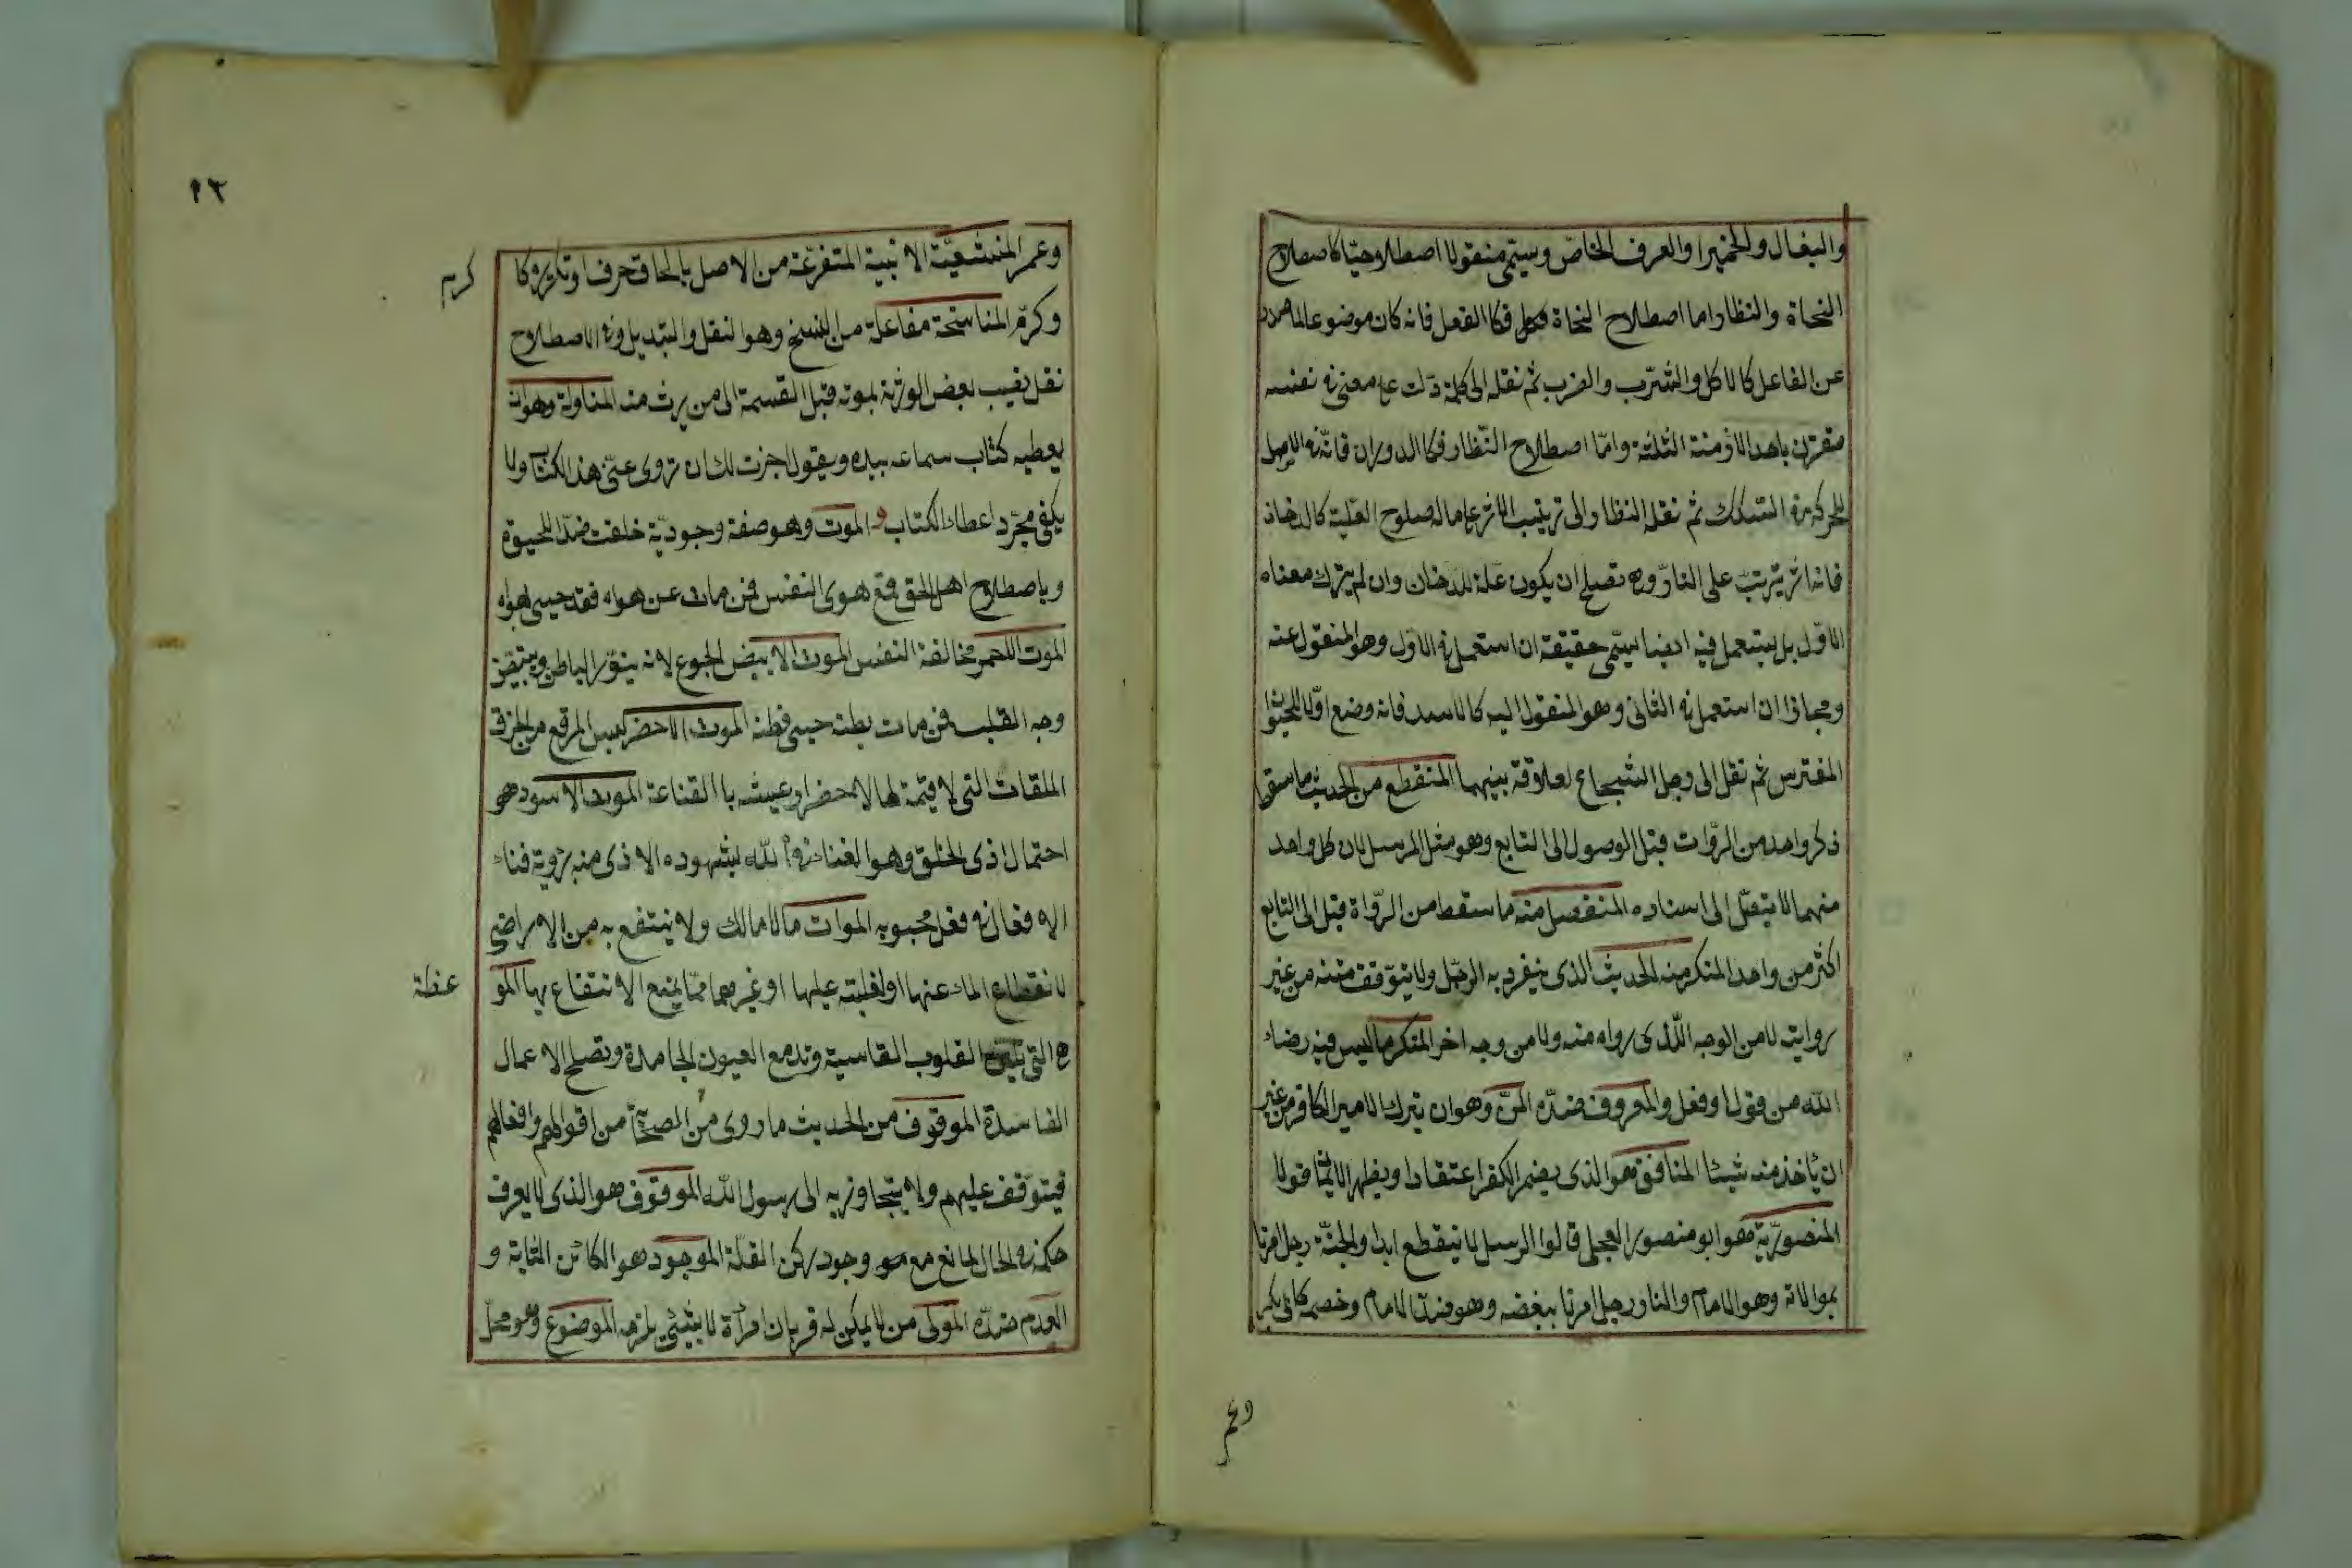 والبغال والحمير او العرف الخاص ويسمى منقولا اصطلاحيا كاصطلاح
النحاة والنظار اما اصطلاح النحاة فكالفعل فانه كان موضوعا لما صدر
عن الفاعل كالاكل والشرب والضرب ثم نقله الى كلمة دلت على معنى في نفسه
مقترن باحد الازمنة الثلثة واما اصطلاح النظار فكالدوران فانه في الاصل
للحركة في السكك ثم نقله النظار الى ترتيب الاثر على ماله صلوح العلية كالدخان
فانه اثر يترتب على النار وهى تصلح ان يكون علة للدخان وان لم يترك معناه
الاول بل يستعمل فيه ايضا يسمى حقيقة ان استعمل في الاول وهو المنقول عنه
ومجازا ان استعمل في الثانى وهو المنقول اليه كالاسد فانه وضع اولا للحيوان
المفترس ثم نقل الى رجل الشجاع لعلاقة بينهما المنقطع من الحديث ما سقط
ذكر واحد من الروات قبل الوصول الى التابع وهو مثل المرسل لان كل واحد
منهما لا يتصل الى اسناده المنفصل منه ما سقط من الرواة قبل الى التابع
اكثر من واحد المنكر منه الحديث الذى ينفرد به الرجل ولا يتوقف متنه من غير
روايته لا من الوجه الذى رواه منه ولا من وجه اخر المنكر ما ليس فيه رضاء
الله من قول او فعل والمعروف ضده المن وهو ان يترك الامير الكافر من غير
ان يأخذ منه شيئا المنافق هو الذى يضمر الكفر اعتقادا ويظهر الايمان قولا
المنصورية هو ابو منصور العجلى قالوا الرسل لا ينقطع ابدا والجنة رجل امرنا
بموالاته وهو الامام والنار رجل امرنا ببغضه وهو ضد الامام وخصمه كابى بكر
وعمر
٩٢
وعمر المنشعبة الابنية المتفرغة من الاصل بالحاق حرف او تكريره كا
كرم
وكرم المناسخة مفاعلة من النسخ وهو النقل والتبديل وفى الاصطلاح
نقل نصيب بعض الورثة بموته قبل القسمة الى من يرث منه المناولة وهو ان
يعطيه كتاب سماعه بيده ويقول اجزت لك ان تروى عنى هذا الكتاب ولا
يكفى مجرد اعطاء الكتاب و الموت وهو صفة وجودية خلقت ضدا للحيوة
وباصطلاح اهل الحق قمع هوى النفس فمن مات عن هواه فقد حيى بهواه
الموت الاحمر مخالفة النفس الموت الابيض الجوع لانه ينور الباطن ويبيض
وجه القلب فمن مات بطنه حيى فطنه الموت الاخضر لبس المرقع من الخرق
الملقات التى لا قيمة لها لاخضرار عيشه بالقناعة الموت الاسود هو
احتمال اذى الخلق وهو الفناء في الله لشهوده الاذى منه برؤية فناء
الافعال في فعل محبوبه الموات ما لا مالك ولا ينتفع به من الاراضى
لانقطاع الماء عنها او لغلبته عليها او غيرهما مما يمنع الانتفاع بها المو
عظة
هى التى تلين القلوب القاسية وتدمع العيون الجامدة وتصلح الاعمال
الفاسدة الموقوف من الحديث ما روى من الصحابة من اقوالهم وافعالهم
فيتوقف عليهم ولا يتجاوز به الى رسول الله الموقوف هو الذى لا يعرف
حكمه في الحال لمانع مع وجود ركن العلة الموجود هو الكائن الثابة و
العدم ضده المولى من لا يمكن له قربان امرأة لا بشىء يلزمه الموضوع وهو محل